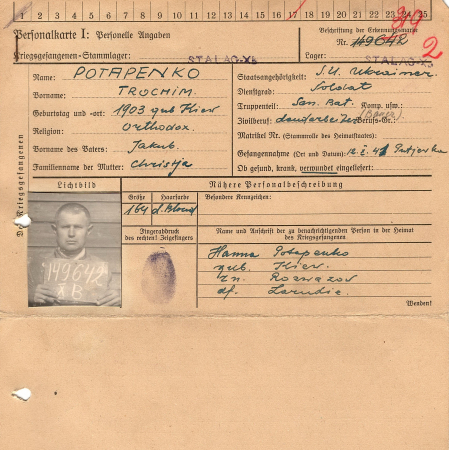 1 2 3 4 5 6 7 8 9 10 11 12 13 14 15 16 17 18 19 20 21 22 23 24 25
Personalkarte I: Personelle Angaben
Kriegsgefangenen-Stammlager:
STALAG XB
Beschriftung der Erkennungsmarke
Nr. 149642
Lager: STALAG XB
2
Des Kriegsgefangenen
Name: POTAPENKO
Vorname: TROCHIM.
Geburtstag und -ort: 1903 gub Kiev
Religion: Orthodox.
Vorname des Vaters: Jakub.
Familienname der Mutter: Christja
Staatsangehörigkeit: S.U. Ukrainer.
Dienstgrad: Soldat
Truppenteil: San. Bat. Komp. usw.:
Zivilberuf: Landarbeiter (Bauer) Berufs-Gr.:
Matrikel Nr. (Stammrolle des Heimatstaates):
Gefangennahme (Ort und Datum):
Ob gesund, krank, verwundet eingeliefert:
Lichtbild
Nähere Personalbeschreibung
Größe
Haarfarbe
Besondere Kennzeichen:
164
d. Blond
Fingerabdruck
des rechten! Zeigefingers
149642
XB
Name und Anschrift der zu benachrichtigenden Person in der Heimat
des Kriegsgefangenen
Hanna Potapenko
gub. Kiev.
df.
Wenden!